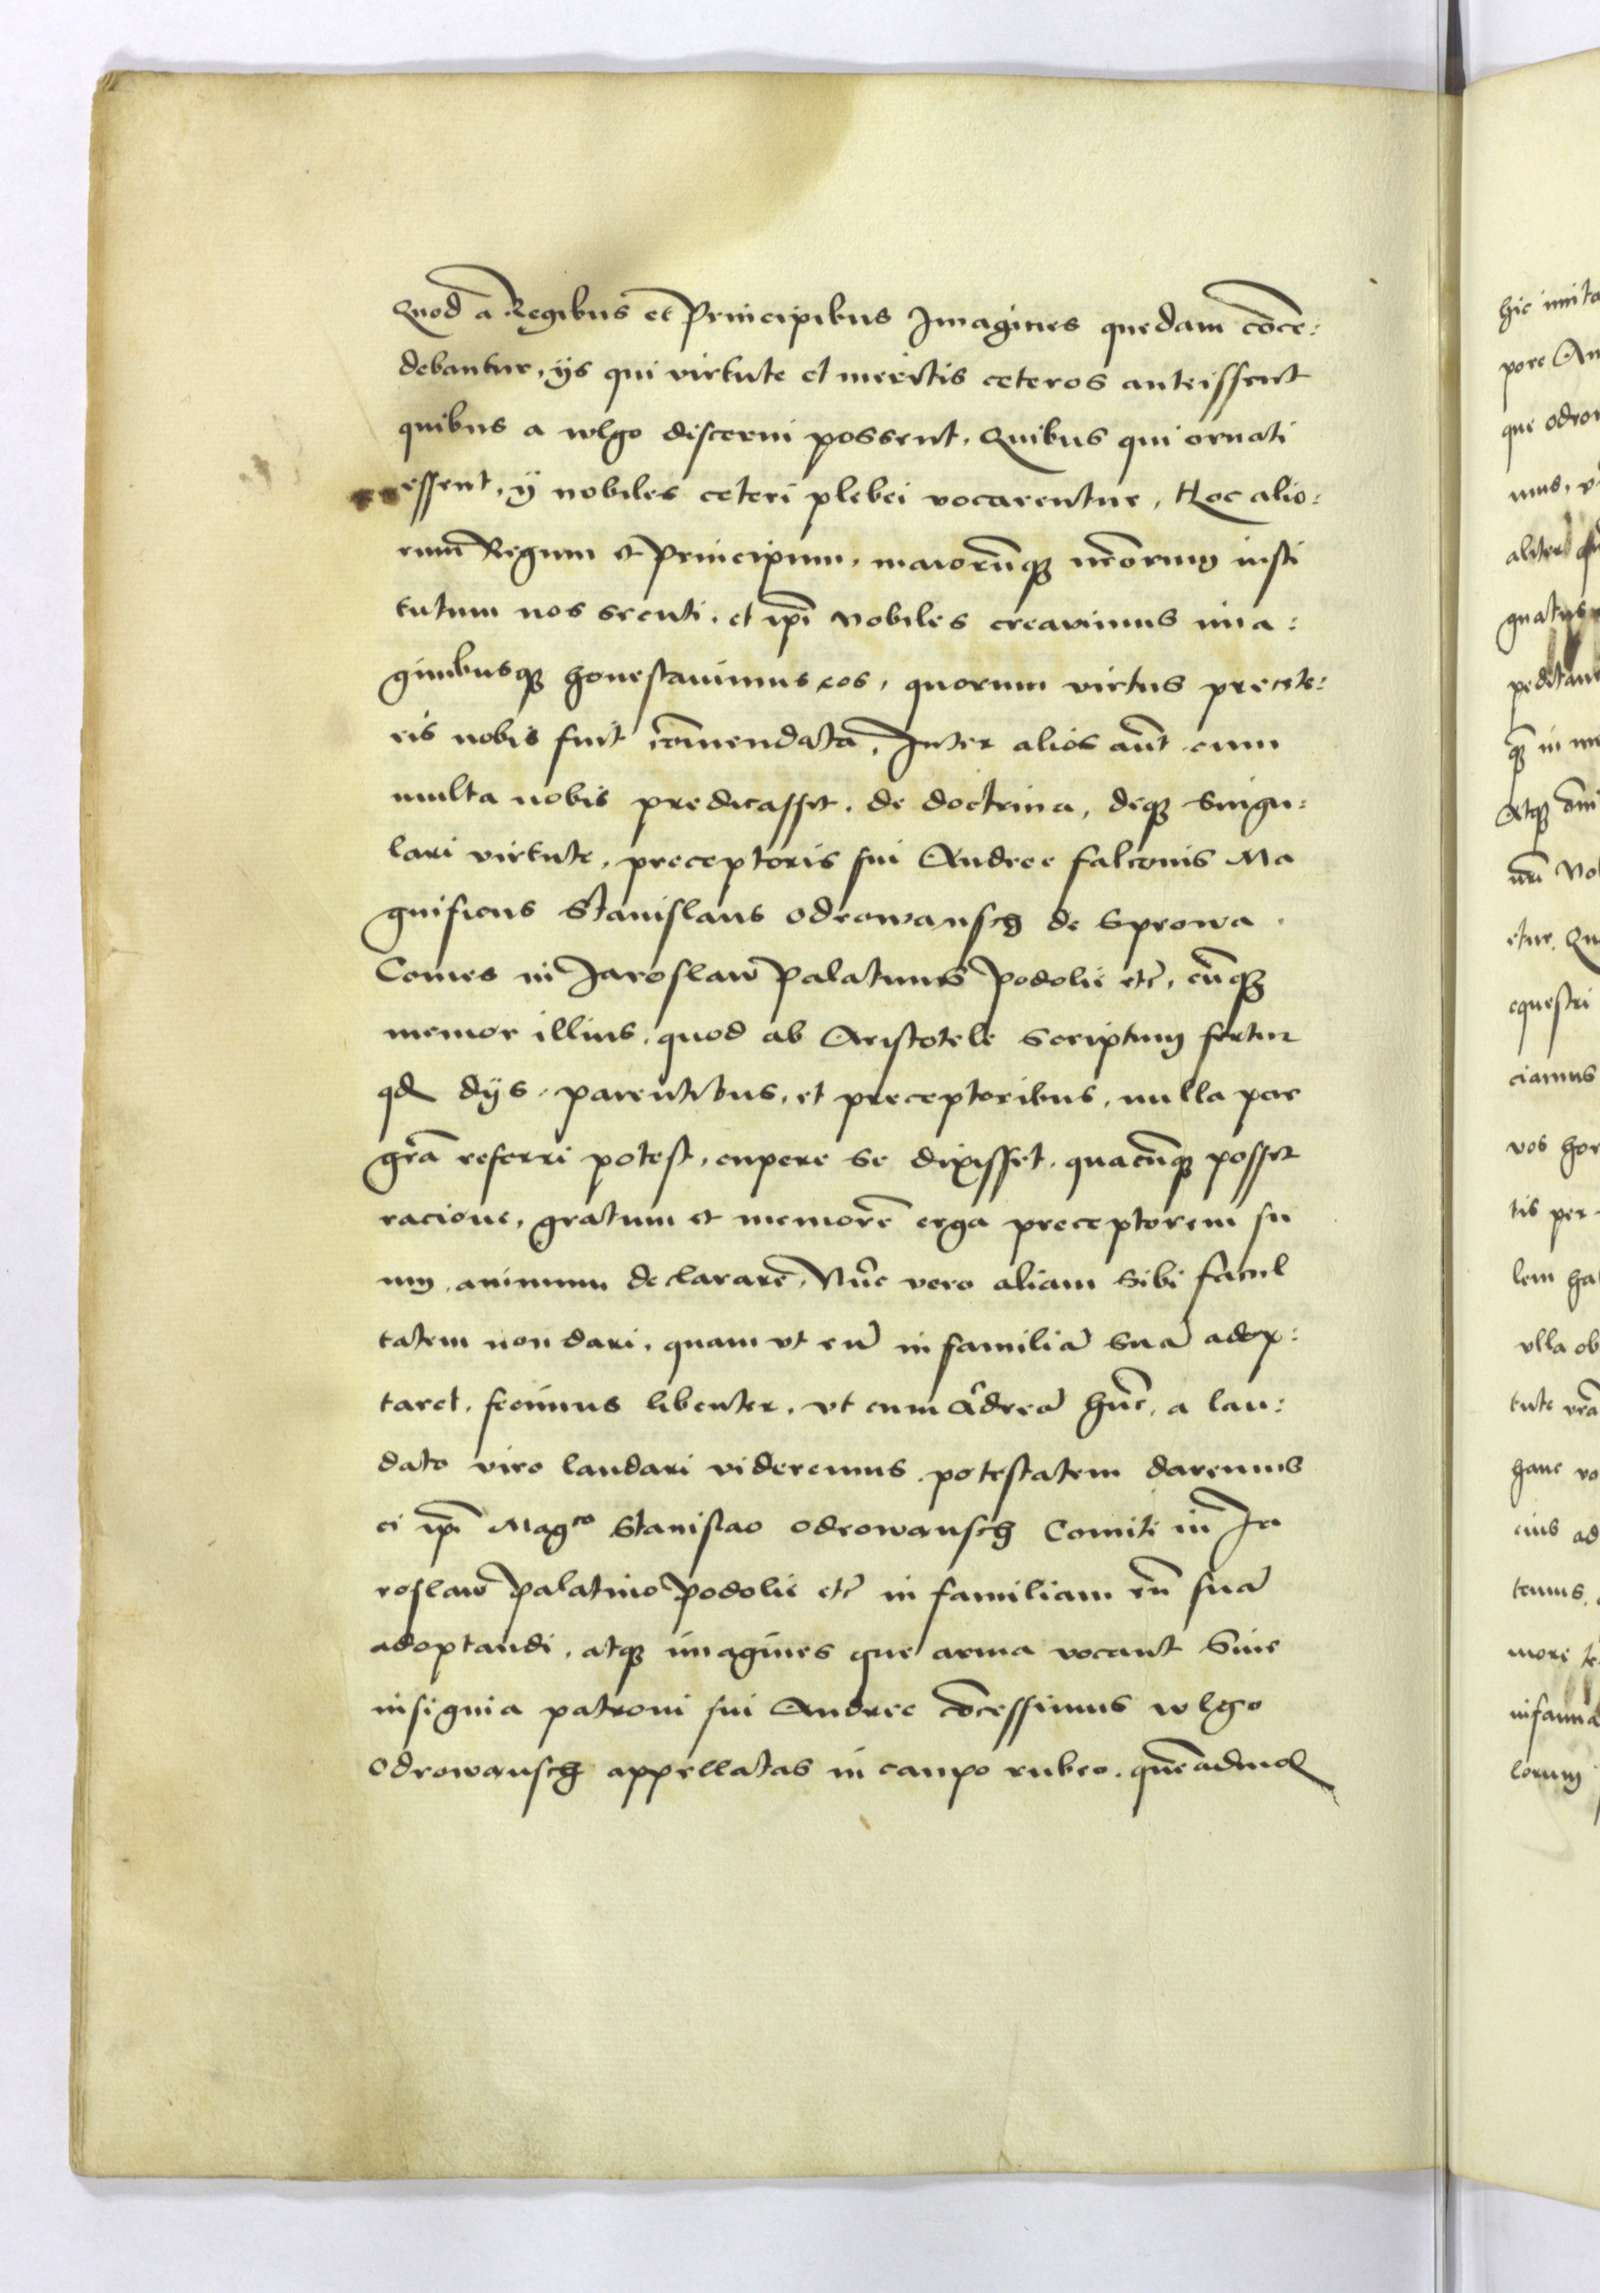 Quod a Regibus et Principibus Imagines quedam cōce:
debantur, ijs qui virtute et meritis ceteros anteissent
quibus a wlgo discerni possent, Quibus qui ornati
essent, ij nobiles ceteri plebei vocarentur, Hoc alio:
rum Regum et Principum, maiorūq3 nr̄orum insti
tutum nos secuti, et ip̄i Nobiles creavimus ima:
ginibusq3 honestavimus eos, quorum virtus pre cete:
ris nobis fuit cōmendata, Inter alios aūt cum
multa nobis predicasset, de doctrina, deq3 singu:
lari virtute, preceptoris sui Andree Falconis Ma
gnificus Stanislaus Odrowansch de Sprowa.
Comes in Jaroslaw Palatinus Podolie etc̄, cūq3
memor illius, quod ab Aristotele scriptum fertur
qd dijs, parentibus, et preceptoribus, nulla par
gr̄a referri potest, cupere se dixisset, quacūq3 posset
racione, gratum et memorē erga preceptorem su
um, animum declarare, Nūc vero aliam sibi facul
tatem non dari, quam vt eū in familiā suā adop:
taret, fecimus libenter, vt cum Ādreā hūc, a lau:
dato viro laudari videremus potestatem daremus
ei ip̄i Mag^co Stanislao Odrowansch Comiti in Ja
roslaw Palatino Podolie etc̄ in familiam eū suā
adoptandi, atq3 imagines que arma vocant Sive
insignia patroni sui Andree cōcessimus wlgo
Odrowansch appellatas in campo rubeo, quēadmod
hic
pore An
que odro
mus,
aliter
gnatus
peditan
q3 in
Atq3
nr̄i No
etur, Qu
equestri
ciamus
vos hor
tis per
lem ha
vlla ob
tute vr̄a
hanc vo
eius ad
temus,
more te
lorum